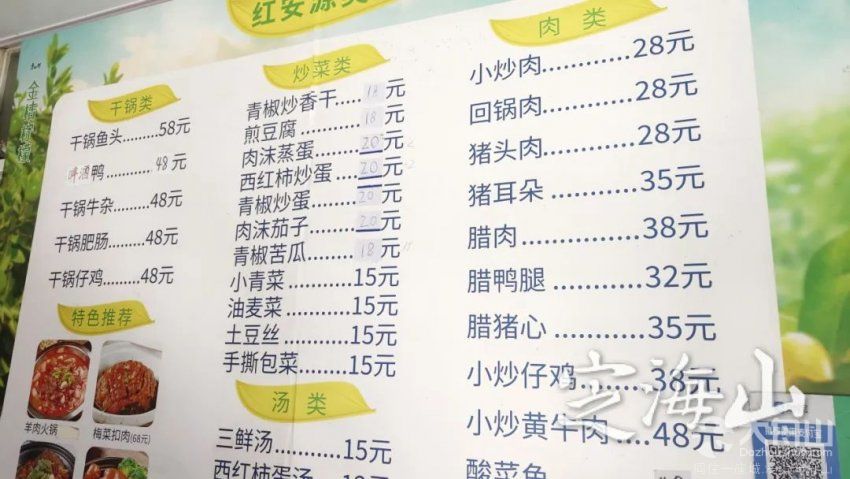 红安源
金桔柠檬
干锅类
干锅鱼头.........58元
啤酒鸭.........48元
干锅牛杂.........48元
干锅肥肠.........48元
干锅仔鸡.........48元
特色推荐
羊肉火锅
梅菜扣肉(68元)
炒菜类
青椒炒香干.....18元
煎豆腐............18元
肉沫蒸蛋.........20元
西红柿炒蛋.....20元
青椒炒蛋.........20元
肉沫茄子.........20元
青椒苦瓜.........18元
小青菜............15元
油麦菜............15元
土豆丝............15元
手撕包菜.........15元
汤 类
三鲜汤............15元
西红柿蛋汤
肉 类
小炒肉............28元
回锅肉............28元
猪头肉............28元
猪耳朵............35元
腊肉...............38元
腊鸭腿............32元
腊猪心............35元
小炒仔鸡.........38元
小炒黄牛肉.....48元
酸菜鱼